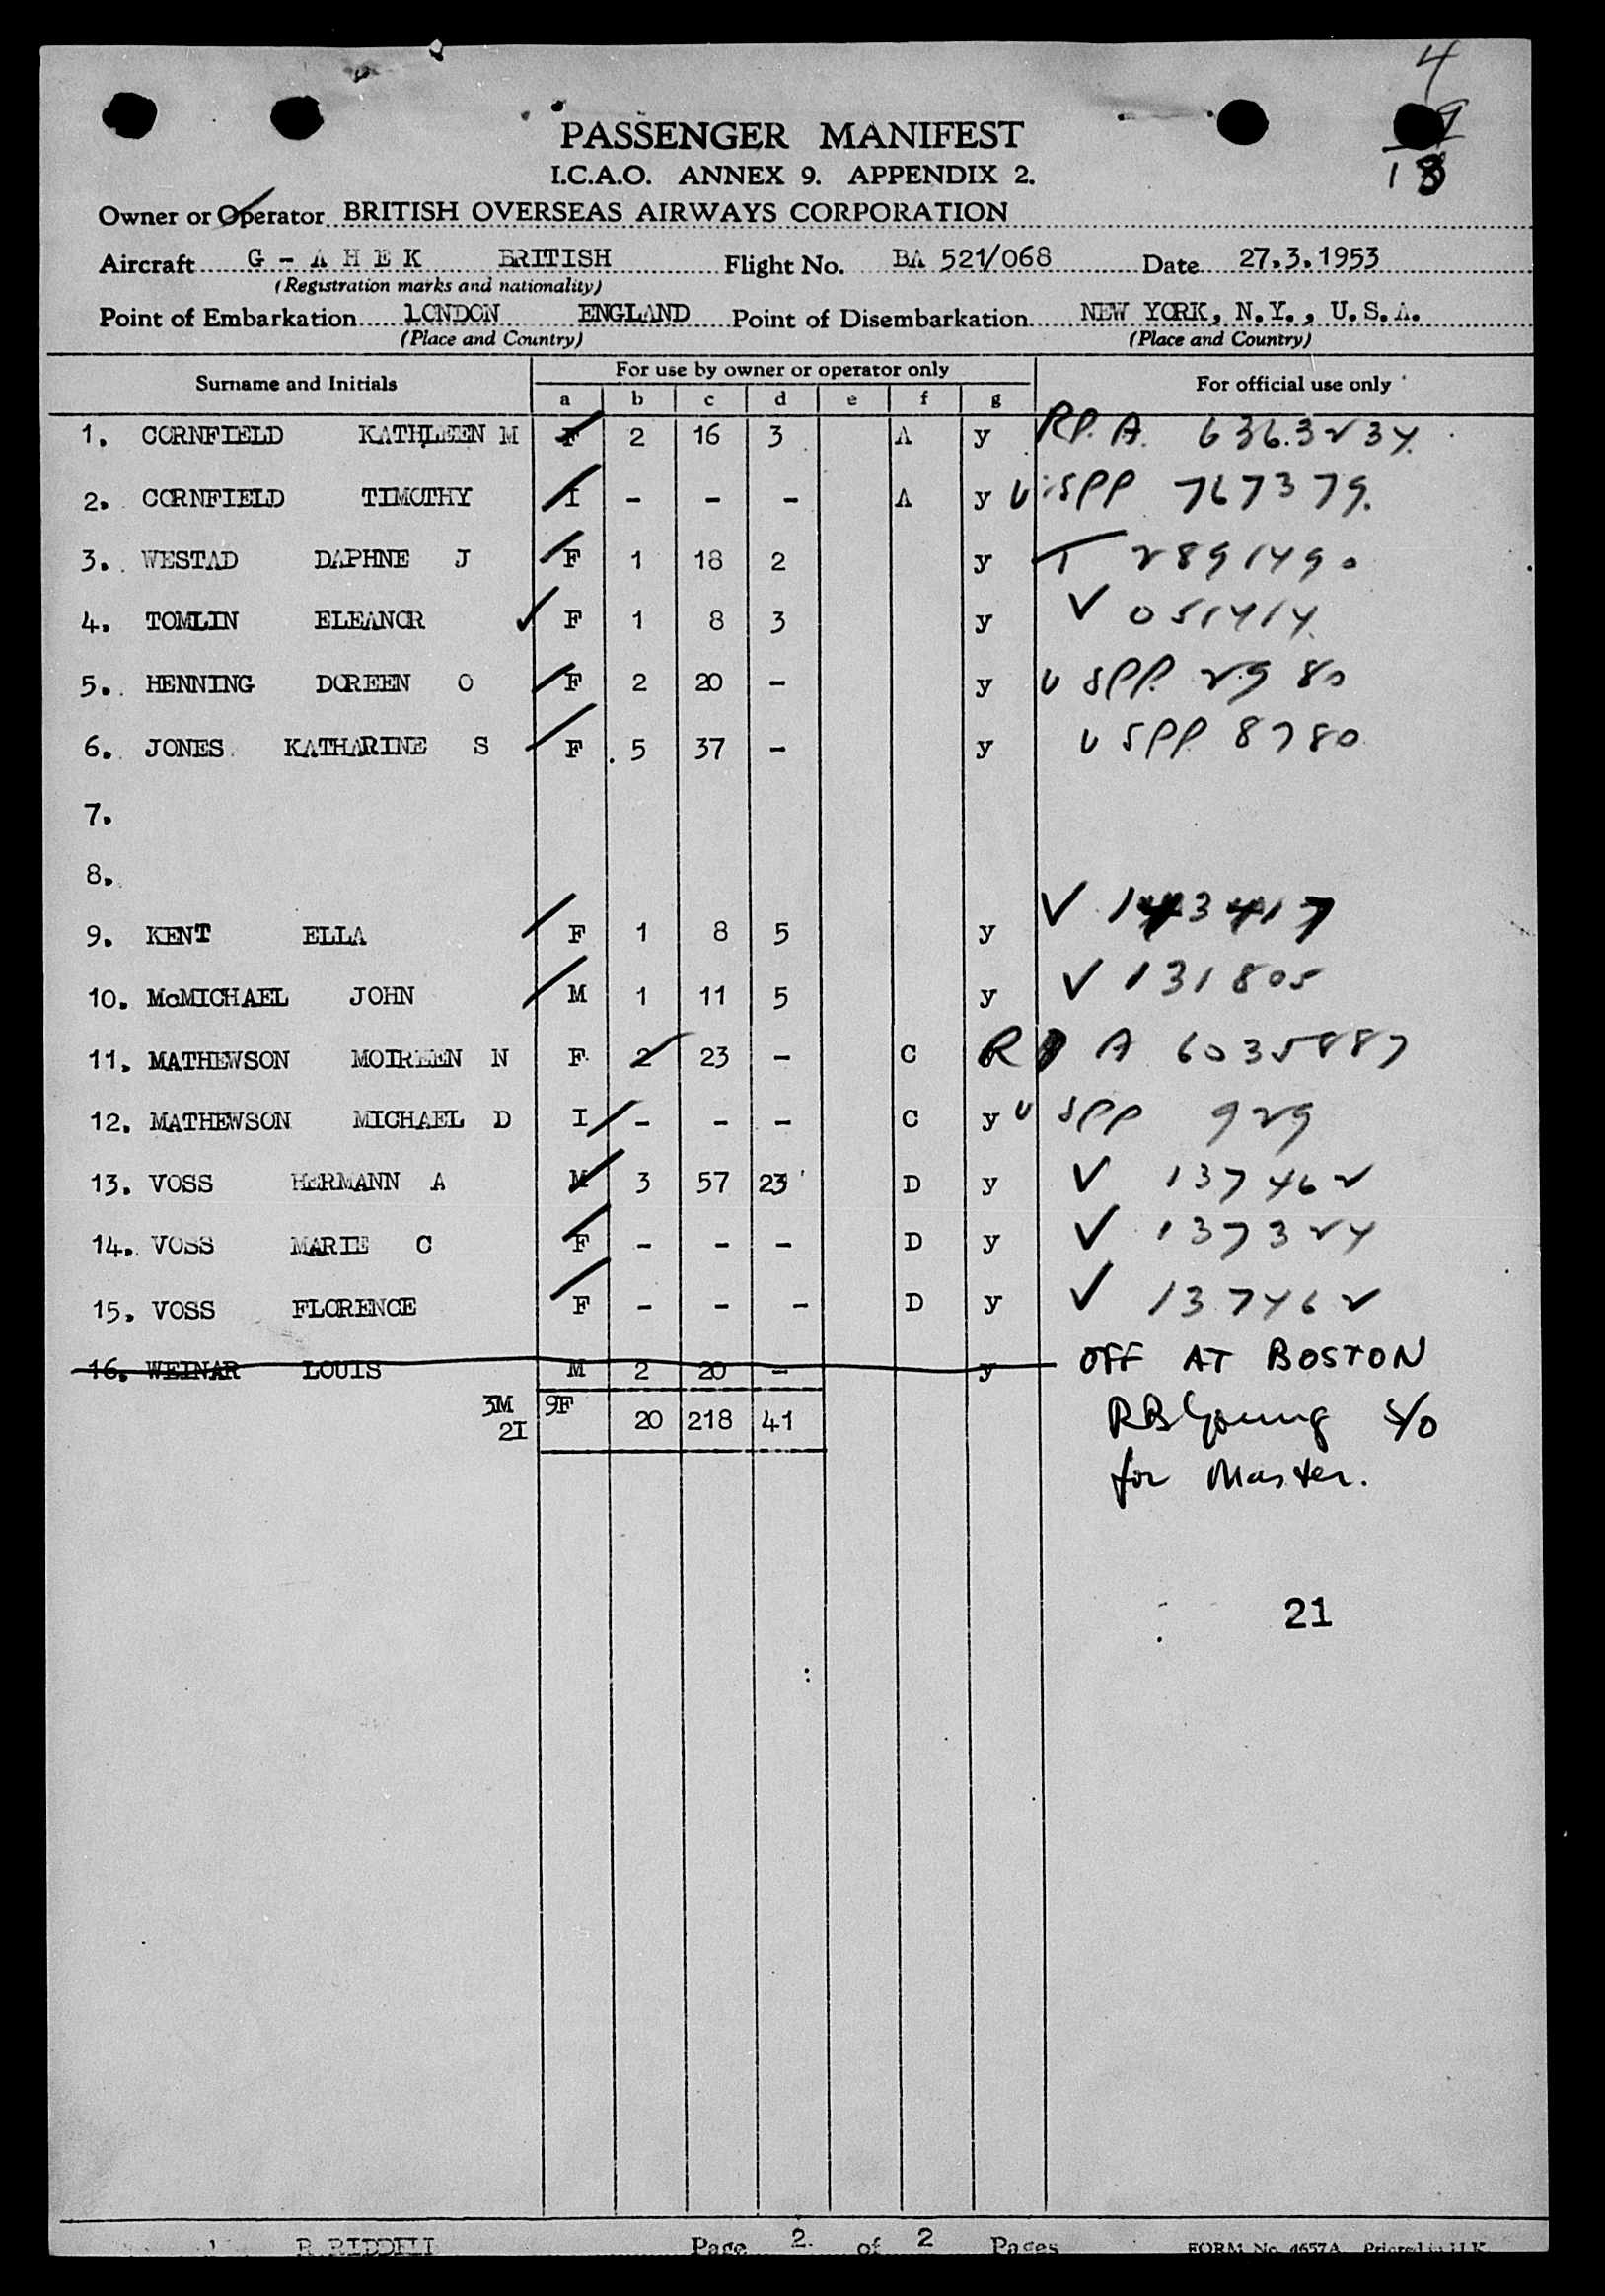 4
9
13
PASSENGER MANIFEST
I.C.A.O. ANNEX 9. APPENDIX 2.
Owner or Operator BRITISH OVERSEAS AIRWAYS CORPORATION
Aircraft G - A H E K BRITISH Flight No. BA 521/068 Date 27.3.1953
(Registration marks and nationality)
Point of Embarkation LONDON ENGLAND Point of Disembarkation NEW YORK, N.Y., U.S.A.
(Place and Country) (Place and Country)
Surname and Initials For use by owner or operator only For official use only
a b c d e f g
1. CORNFIELD KATHLEEN M F 2 16 3 A y RP. A. 6363234.
2. CORNFIELD TIMOTHY I - - - A y USPP 767379.
3. WESTAD DAPHNE J F 1 18 2 y T 2891490
4. TOMLIN ELEANOR F 1 8 3 y V 051414.
5. HENNING DOREEN O F 2 20 - y USPP. 2980
6. JONES KATHARINE S F 5 37 - y USPP 8780
7.
8.
9. KENT ELLA F 1 8 5 y V 143417
10. McMICHAEL JOHN M 1 11 5 y V 131805
11. MATHEWSON MOIREEN N F 2 23 - C RP A 6035887
12. MATHEWSON MICHAEL D I - - - C y USPP 929
13. VOSS HERMANN A M 3 57 23 D y V 137462
14. VOSS MARIE C F - - - D y V 137324
15. VOSS FLORENCE F - - - D y V 137462
16. WEINAR LOUIS M 2 20 - y OFF AT BOSTON
3M 9F 20 218 41 RB Young S/O
2I
for Master.
21
R RIDDELL Page 2. of 2 Pages FORM No. 4657A Printed in U.K.